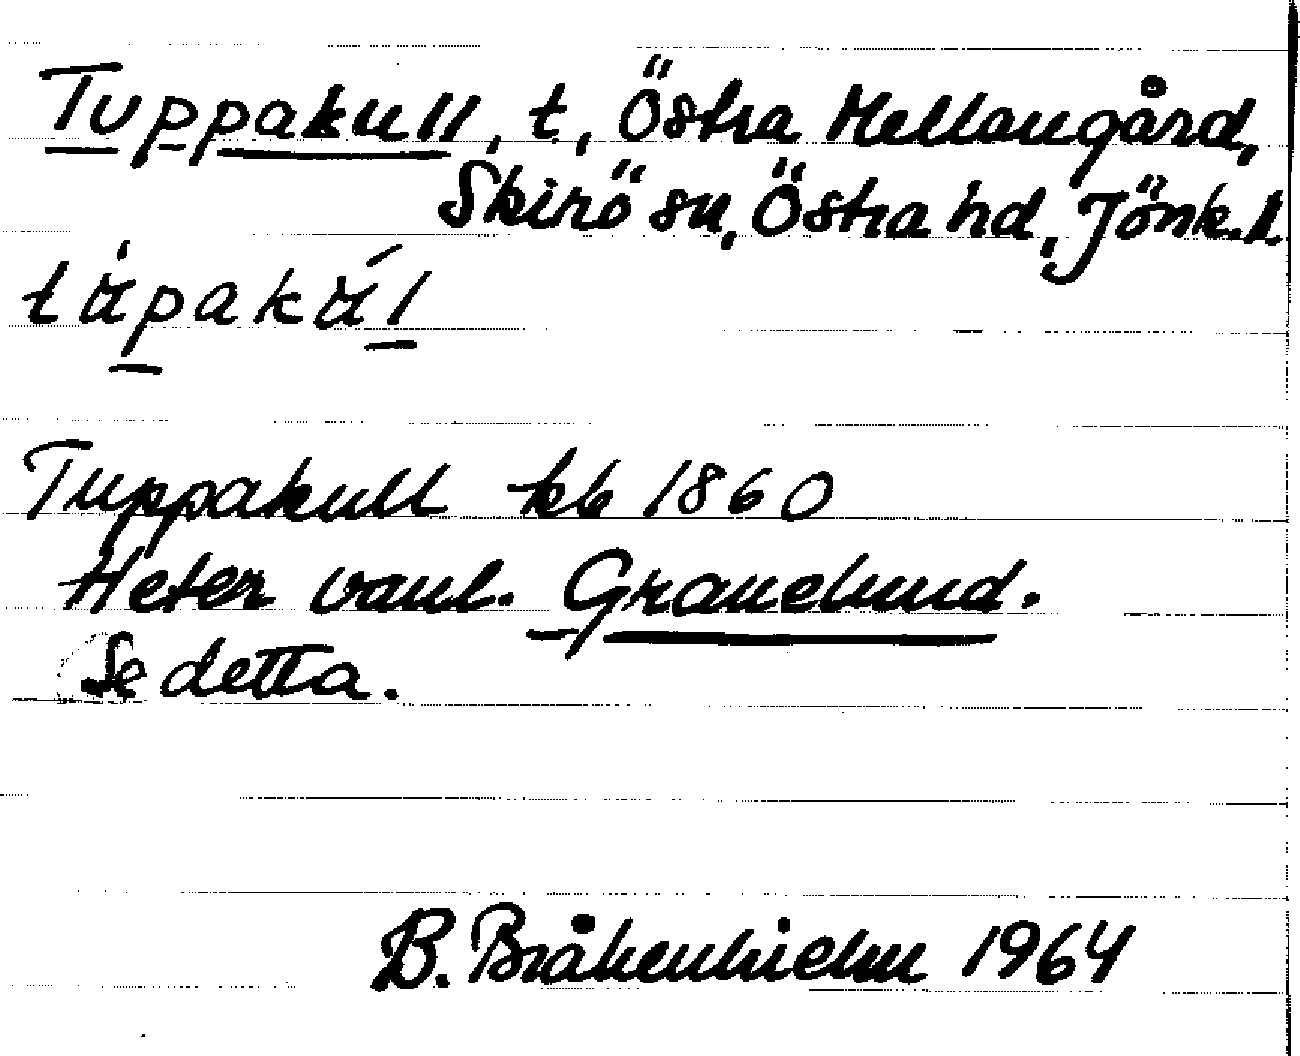 Tuppakull, t, Östra Mellangård,
Skirö sn, Östra hd, Jönk.l.
Tuppakull kb 1860
Heter vanl. Granelund.
Se detta.
B. Bråkenhielm 1964